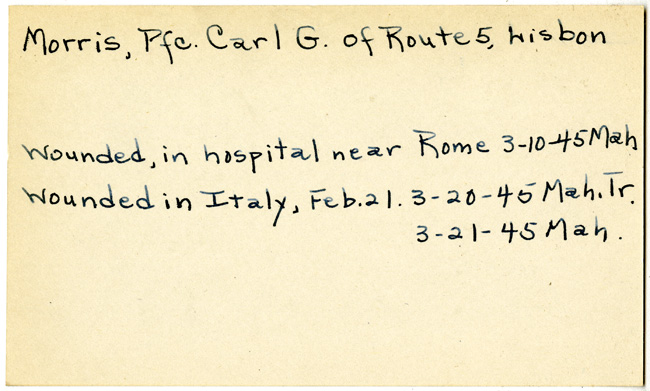 Morris, Pfc. Carl G. of Route 5, Lisbon
Wounded, in hospital near Rome 3-10-45 Mah
Wounded in Italy, Feb. 21. 3-20-45 Mah. Tr.
3-21-45 Mah.